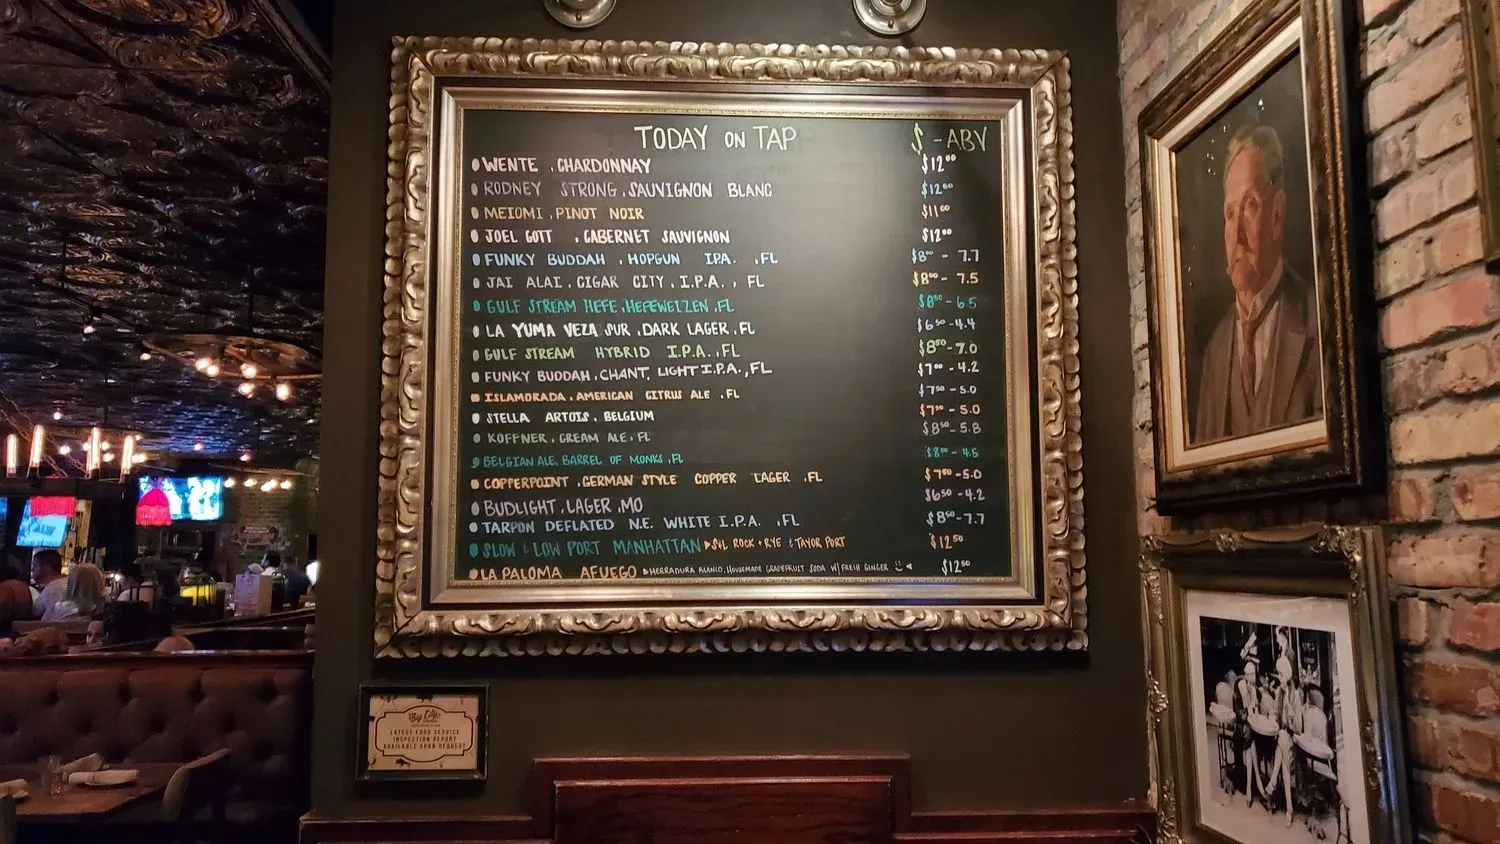 TODAY ON TAP $ - ABV
WENTE . CHARDONNAY $12⁰⁰
RODNEY STRONG . SAUVIGNON BLANC $12⁰⁰
MEIOMI . PINOT NOIR $11⁰⁰
JOEL GOTT . CABERNET SAUVIGNON $12⁰⁰
FUNKY BUDDAH . HOPGUN IPA. . FL $8⁰⁰ - 7.7
JAI ALAI . CIGAR CITY . I.P.A. , FL $8⁰⁰ - 7.5
GULF STREAM HEFE . HEFEWEIZEN . FL $8⁵⁰ - 6.5
LA YUMA VEZA SUR . DARK LAGER . FL $6⁵⁰ - 4.4
GULF STREAM HYBRID I.P.A. , FL $8⁵⁰ - 7.0
FUNKY BUDDAH . CHANT. LIGHT I.P.A. , FL $7⁰⁰ - 4.2
ISLAMORADA . AMERICAN CITRUS ALE . FL $7⁵⁰ - 5.0
STELLA ARTOIS . BELGIUM $7⁵⁰ - 5.0
KOFFNER . CREAM ALE . FL $8⁵⁰ - 5.8
BELGIAN ALE. BARREL OF MONKS . FL $8⁰⁰ - 4.5
COPPERPOINT . GERMAN STYLE COPPER LAGER . FL $7⁵⁰ - 5.0
BUDLIGHT . LAGER . MO $6⁵⁰ - 4.2
TARPON DEFLATED N.E. WHITE I.P.A. . FL $8⁵⁰ - 7.7
SLOW & LOW PORT MANHATTAN ROCK & RYE & TAYOR PORT $12⁵⁰
LA PALOMA AFUEGO HERRADURA BLANCO, HOUSEMADE GRAPEFRUIT SODA W/ FRESH GINGER $12⁵⁰
Big City
LATEST FOOD SERVICE
INSPECTION REPORT
AVAILABLE UPON REQUEST